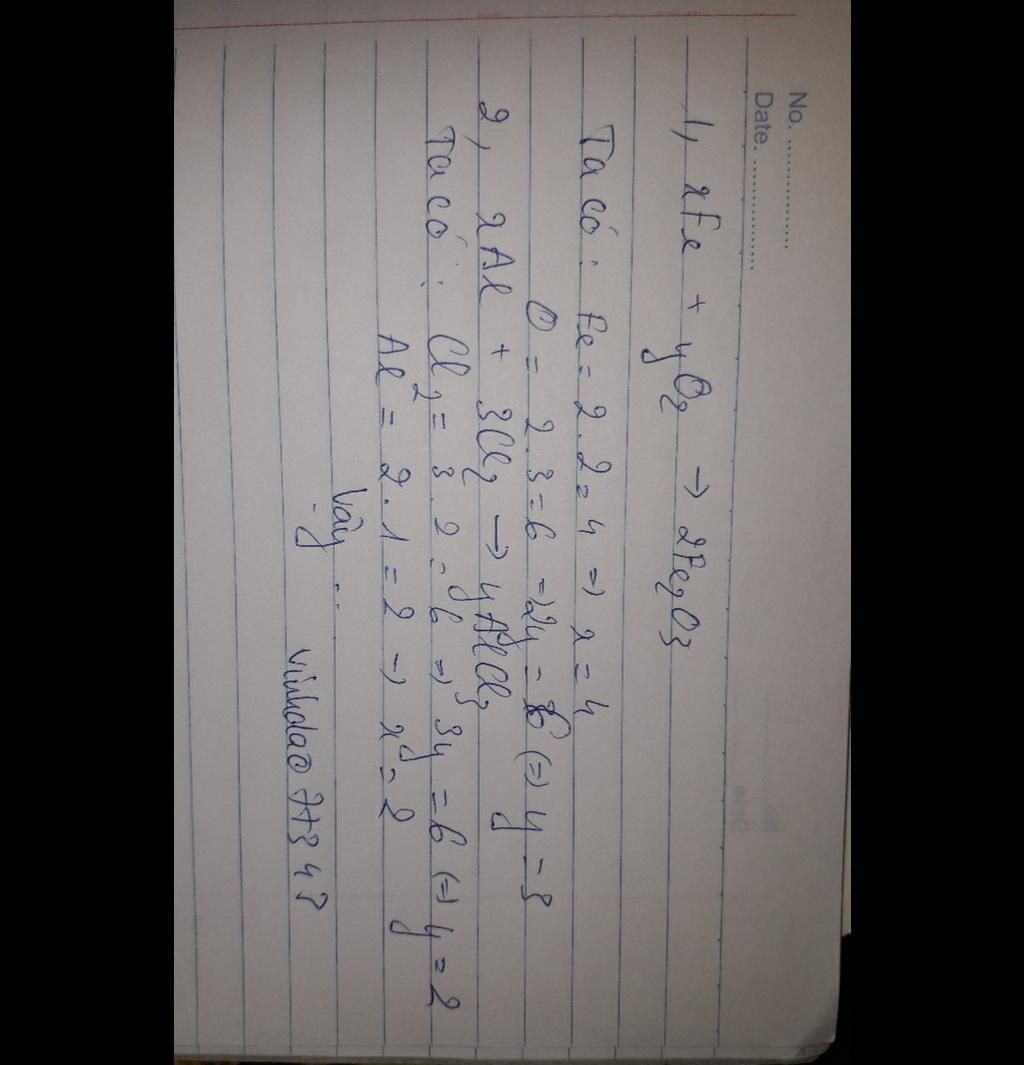 No. ..................
Date. ..................
1, xFe + yO₂ → 2Fe₂O₃
Ta có: Fe = 2.2 = 4 => x = 4
O = 2.3 = 6 => 2y = 6 (=) y = 3
2, xAl + 3Cl₂ → yAlCl₃
Ta có: Cl₂ = 3.2 = 6 => 3y = 6 (=) y = 2
Al = 2.1 = 2 => x = 2
Vậy ..